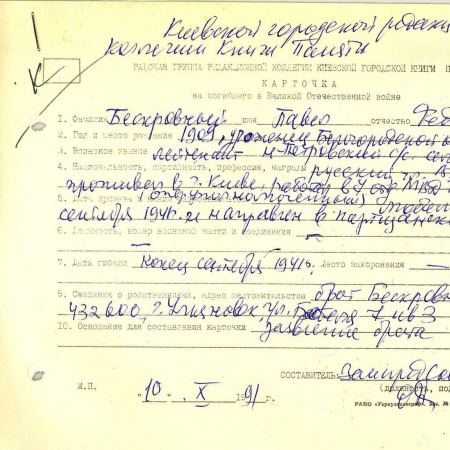 Киевской городской редакц
коллегии Книги Памяти
РАБОЧАЯ ГРУППА РЕДАКЦИОННОЙ КОЛЛЕГИИ КИЕВСКОЙ ГОРОДСКОЙ КНИГИ П
КАРТОЧКА
на погибшего в Великой Отечественной войне
1. Фамилия Бескровный имя Павел отчество Фед
2. Год и место рождения 1909, уроженец Белгородской о
3. Воинское звание лейтенант н-Петровский с/с сел
4. Национальность, партийность, профессия, награды русский
проживал в г. Киеве, работал в
5. Дата призыва и
сентября 1941 г. и направлен в партизанск
6. Должность, номер воинской части и соединения —
7. Дата гибели конец сентября 1941 г. Место захоронения —
9. Сведения о родственниках, адрес местожительства брат Бескров
432600, г. Ульяновск, ул.
10. Основание для составления карточки заявление брата
СОСТАВИТЕЛЬ: Зампредсо
(должность, под
М.П. "10" X 1991 г.